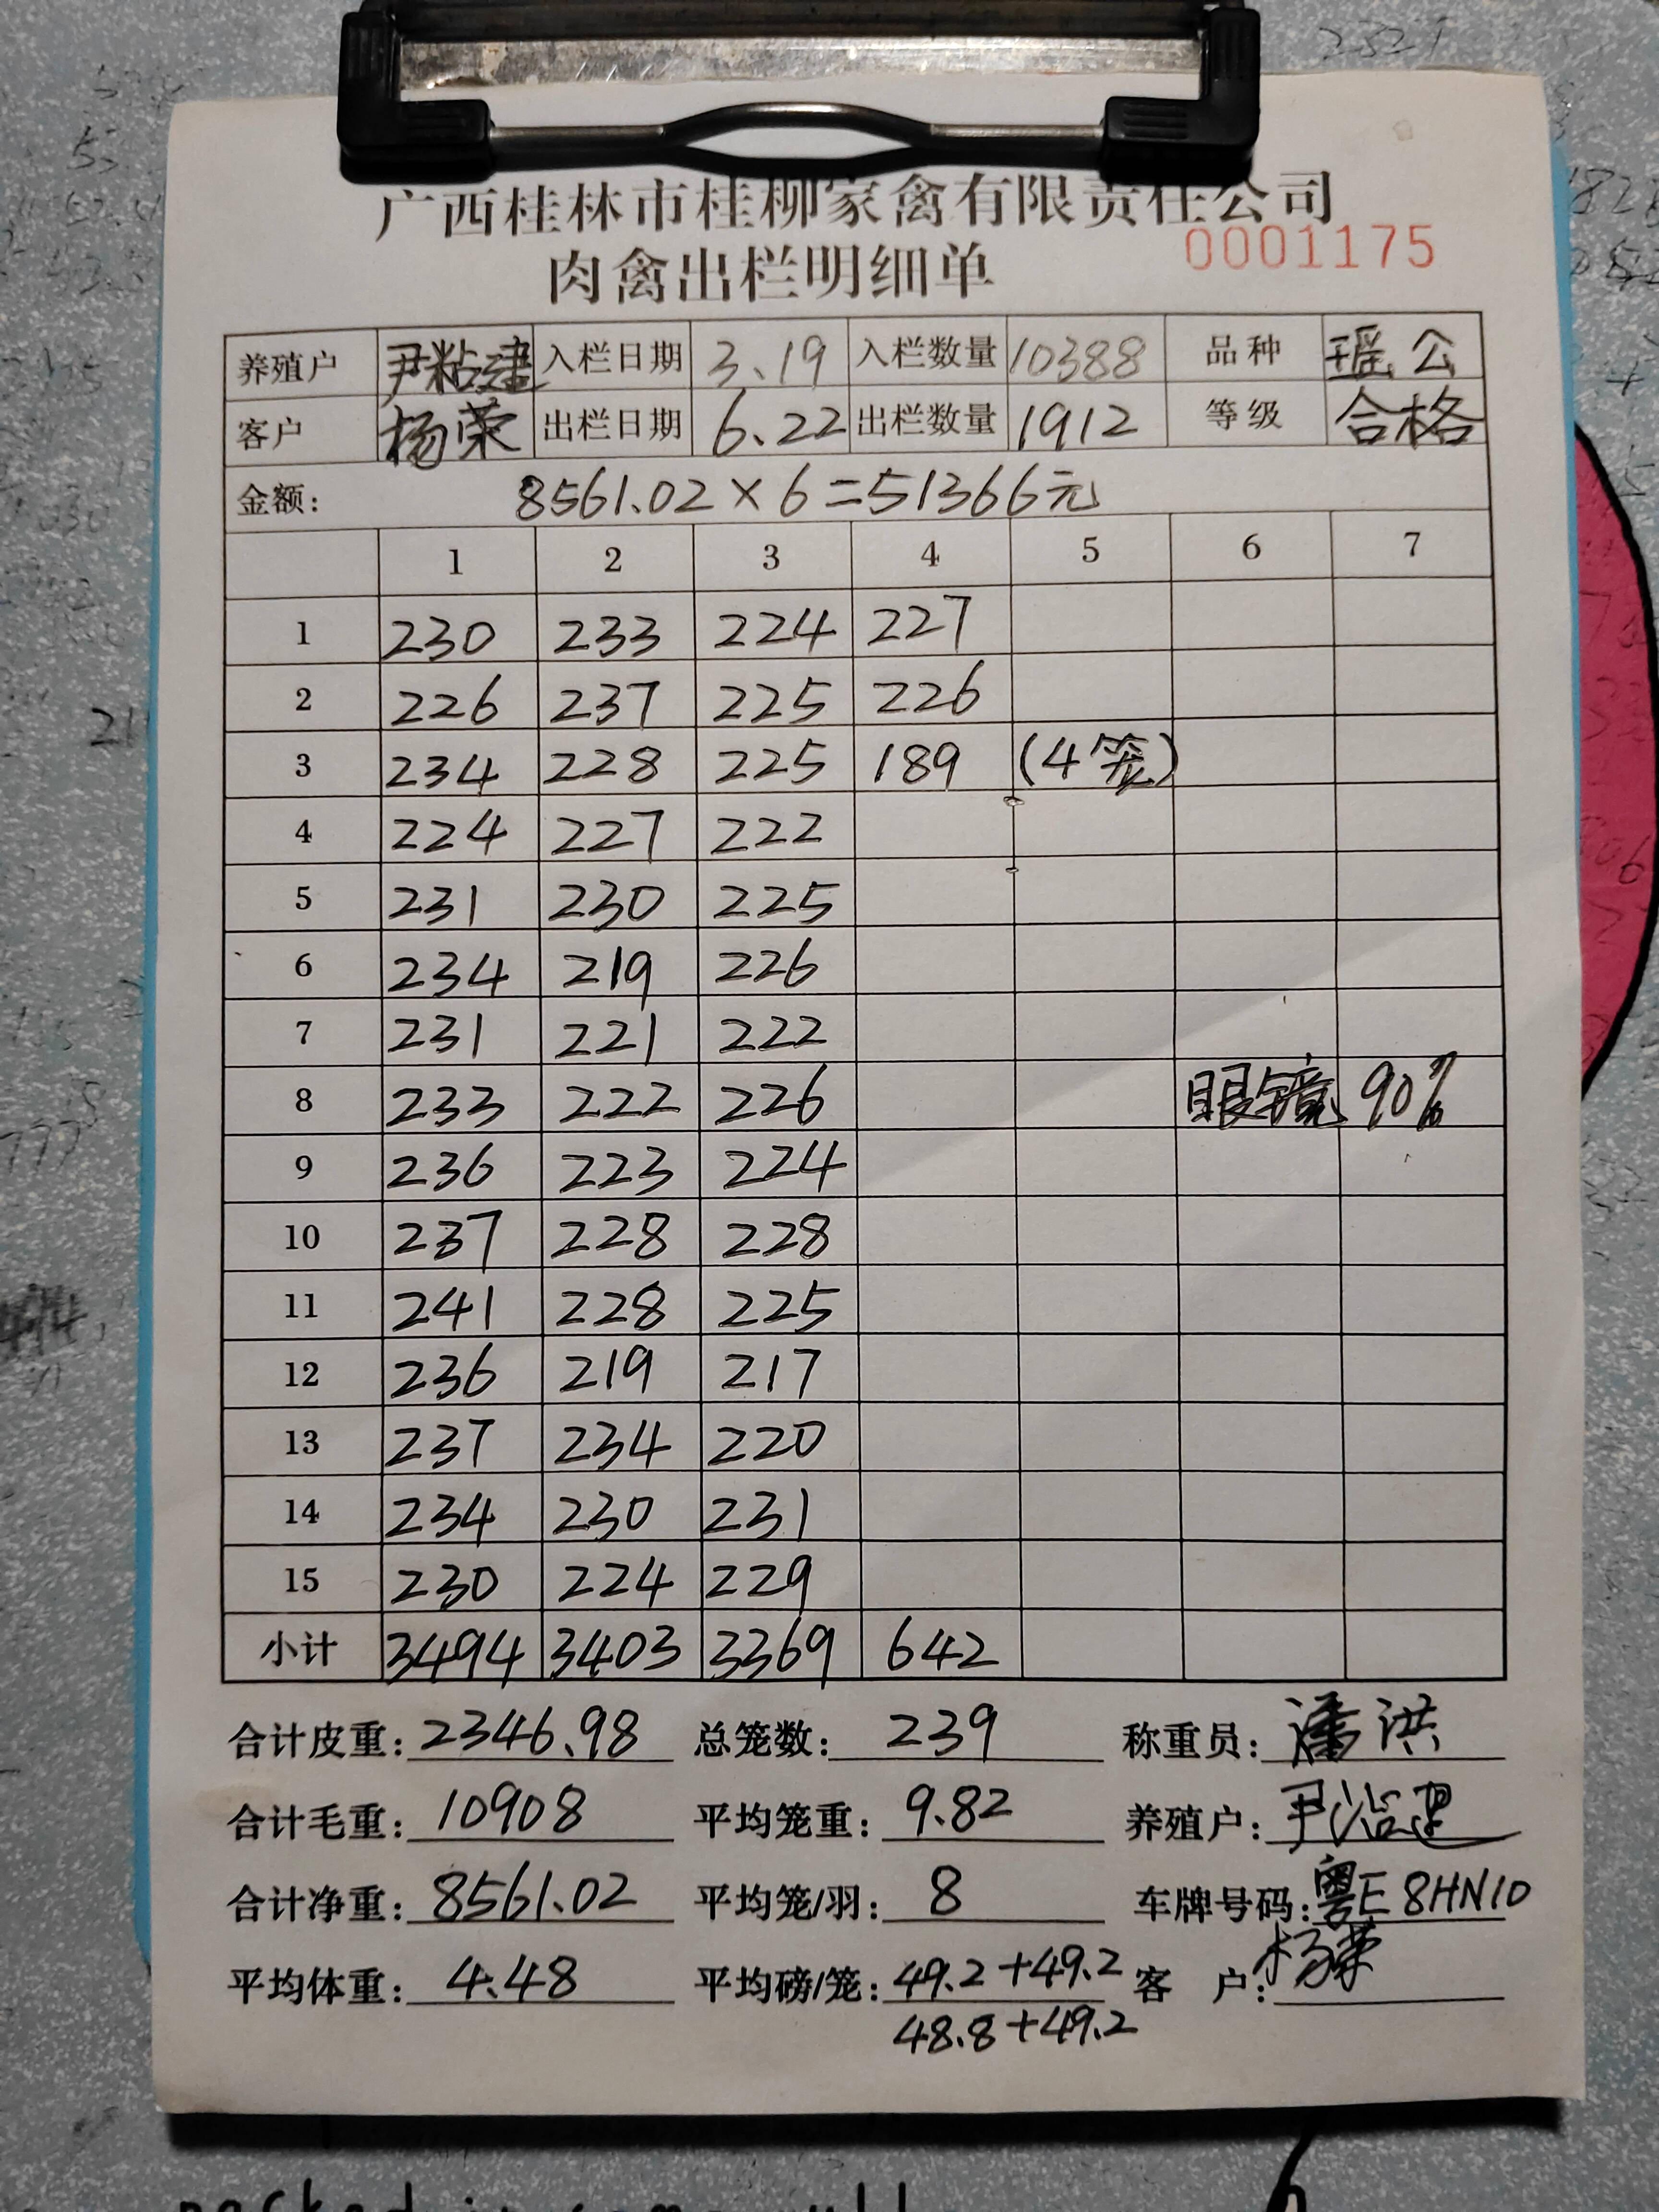 广西桂林市桂柳家禽有限责任公司
肉禽出栏明细单 0001175
养殖户 尹粘建 入栏日期 3.19 入栏数量 10388 品种 瑶公
客户 杨荣 出栏日期 6.22 出栏数量 1912 等级 合格
金额: 8561.02×6=51366元
1 2 3 4 5 6 7
1 230 233 224 227
2 226 237 225 226
3 234 228 225 189 (4笼)
4 224 227 222
5 231 230 225
6 234 219 226
7 231 221 222
8 233 222 226 眼镜 90%
9 236 223 224
10 237 228 228
11 241 228 225
12 236 219 217
13 237 234 220
14 234 230 231
15 230 224 229
小计 3494 3403 3369 642
合计皮重: 2346.98 总笼数: 239 称重员: 潘洪
合计毛重: 10908 平均笼重: 9.82 养殖户:
合计净重: 8561.02 平均笼/羽: 8 车牌号码: 粤E8HN10
平均体重: 4.48 平均磅/笼: 49.2+49.2 客户: 杨荣
48.8+49.2